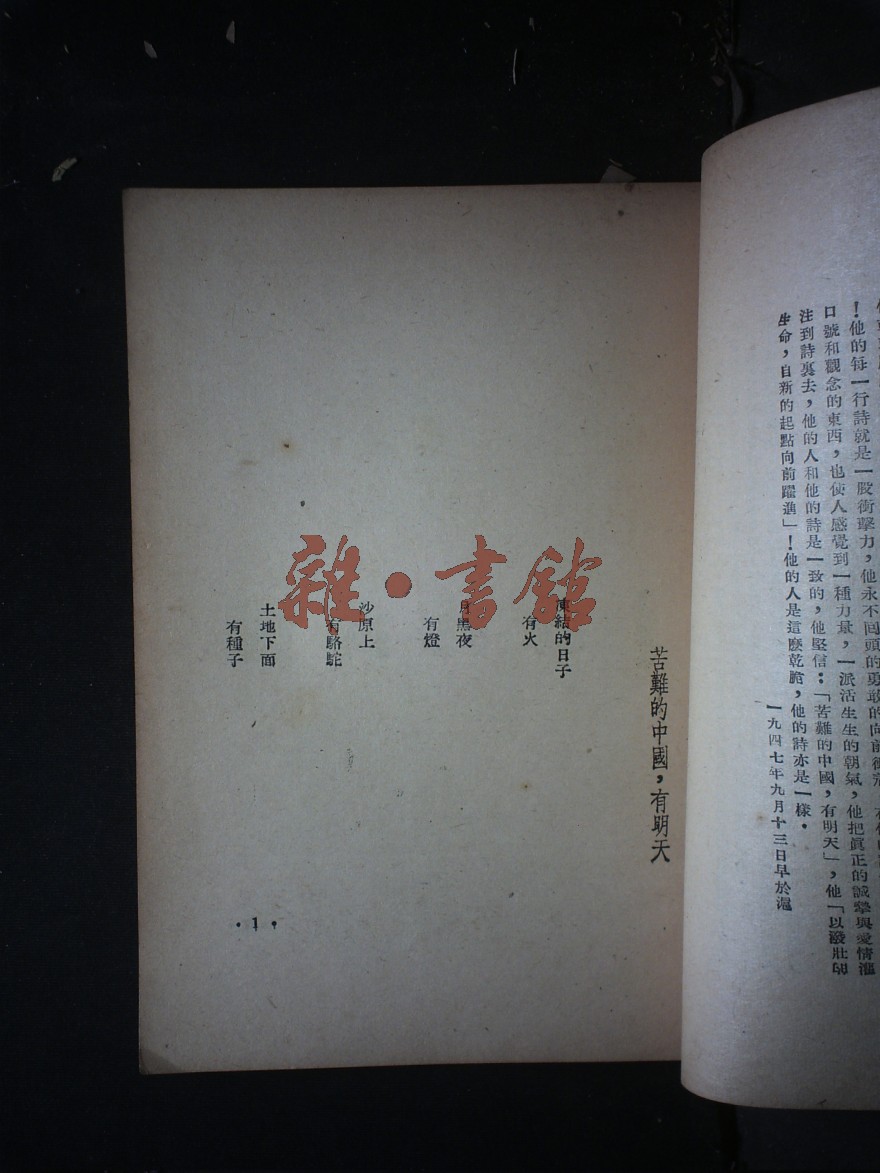 ！他的每一行詩就是一股衝擊力，他永不回頭的勇敢的向前
口號和觀念的東西，也使人感覺到一種力量，一派活生生的朝氣，他把眞正的誠摯與愛情灌
注到詩裏去，他的人和他的詩是一致的，他堅信：「苦難的中國，有明天」，他「以潑壯的
生命，自新的起點向前躍進」！他的人是這麼乾脆，他的詩亦是一樣．
一九四七年九月十三日早於滬
苦難的中國，有明天
凍結的日子
有火
月黑夜
有燈
沙原上
有駱駝
土地下面
有種子
·1·
雜·書館